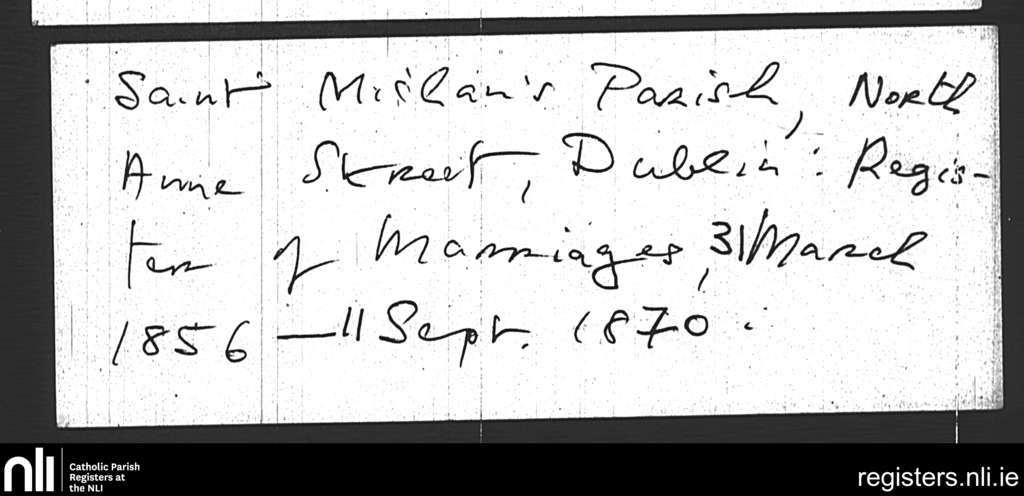 Saint Michan's Parish, North
Anne Street, Dublin: Regis-
ter of Marriages, 31 March
1856 — 11 Sept. 1870.
nli
Catholic Parish
Registers at
the NLI
registers.nli.ie